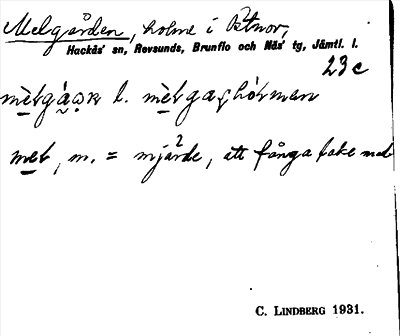 Melgården, holme i Petnor,
Hackås' sn, Revsunds, Brunflo och Näs' tg, Jämtl. l.
23c
l.
met, m. = mjärde, att fånga lake med
C. LINDBERG 1931.